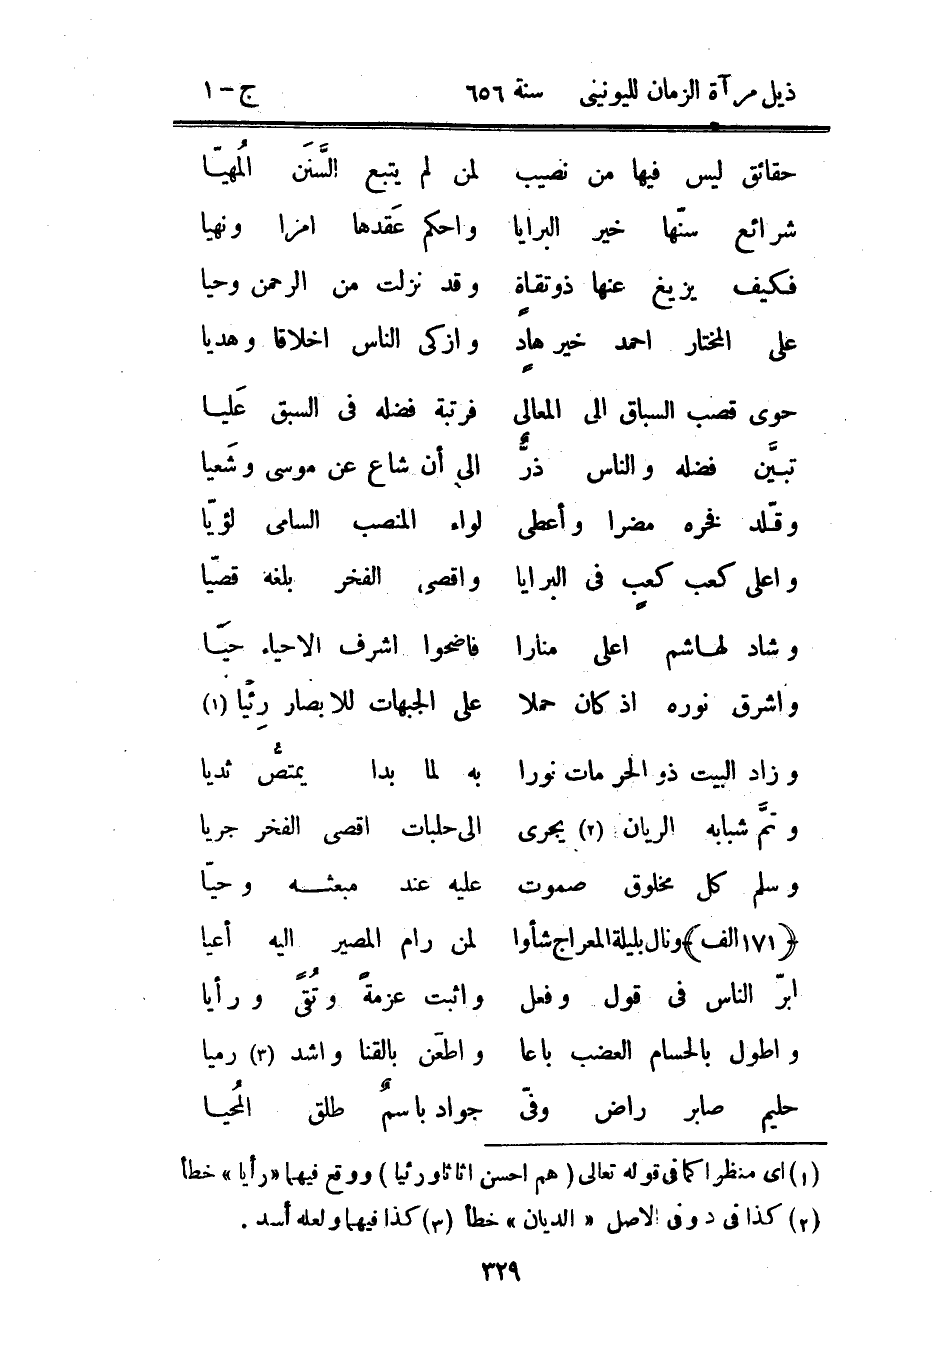 ذيل مرآة الزمان لليونينى سنة ٦٥٦ ج - ١
حقائق ليس فيها من نصيب لمن لم يتبع السَّنَن المُهيّا
شرائع سنّها خير البرايا واحكم عَقدها امرا ونهيا
فكيف يزيغ عنها ذو تقاةٍ وقد نزلت من الرحمن وحيا
على المختار احمد خير هادٍ وازكى الناس اخلاقا وهديا
حوى قصب السباق الى المعالى فرتبة فضله فى السبق عَليا
تبيَّن فضله والناس ذرٌّ الى أن شاع عن موسى وشَعيا
وقلّد فخره مضرا وأعطى لواء المنصب السامى لؤيّا
واعلى كعب كعبٍ فى البرايا واقصى الفخر بلغه قصيّا
وشاد لهاشم اعلى منارا فاضحوا اشرف الاحياء حيَّا
واشرق نوره اذ كان حملا على الجبهات للابصار رِئيًا (١)
وزاد البيت ذو الحرمات نورا به لما بدا يمتصُّ ثديا
وتمَّ شبابه الريان (٢) يجرى الى حلبات اقصى الفخر جريا
وسلم كل مخلوق صموت عليه عند مبعثه وحيّا
﴿١٧١ الف﴾ ونال بليلة المعراج شأوا لمن رام المصير اليه أعيا
ابرّ الناس فى قول وفعل واثبت عزمةً وتُقًى ورأيا
واطول بالحسام العضب باعا واطعَن بالقنا واشد (٣) رميا
حليم صابر راض وفىّ جواد باسمٌ طلق المُحيا
(١) اى منظرا كما فى قوله تعالى (هم احسن اثاثا ورئيا) ووقع فيهما «رأيا» خطأ
(٢) كذا فى د وفى الاصل «الديان» خطأ (٣) كذا فيهما ولعله أسد .
٣٢٩